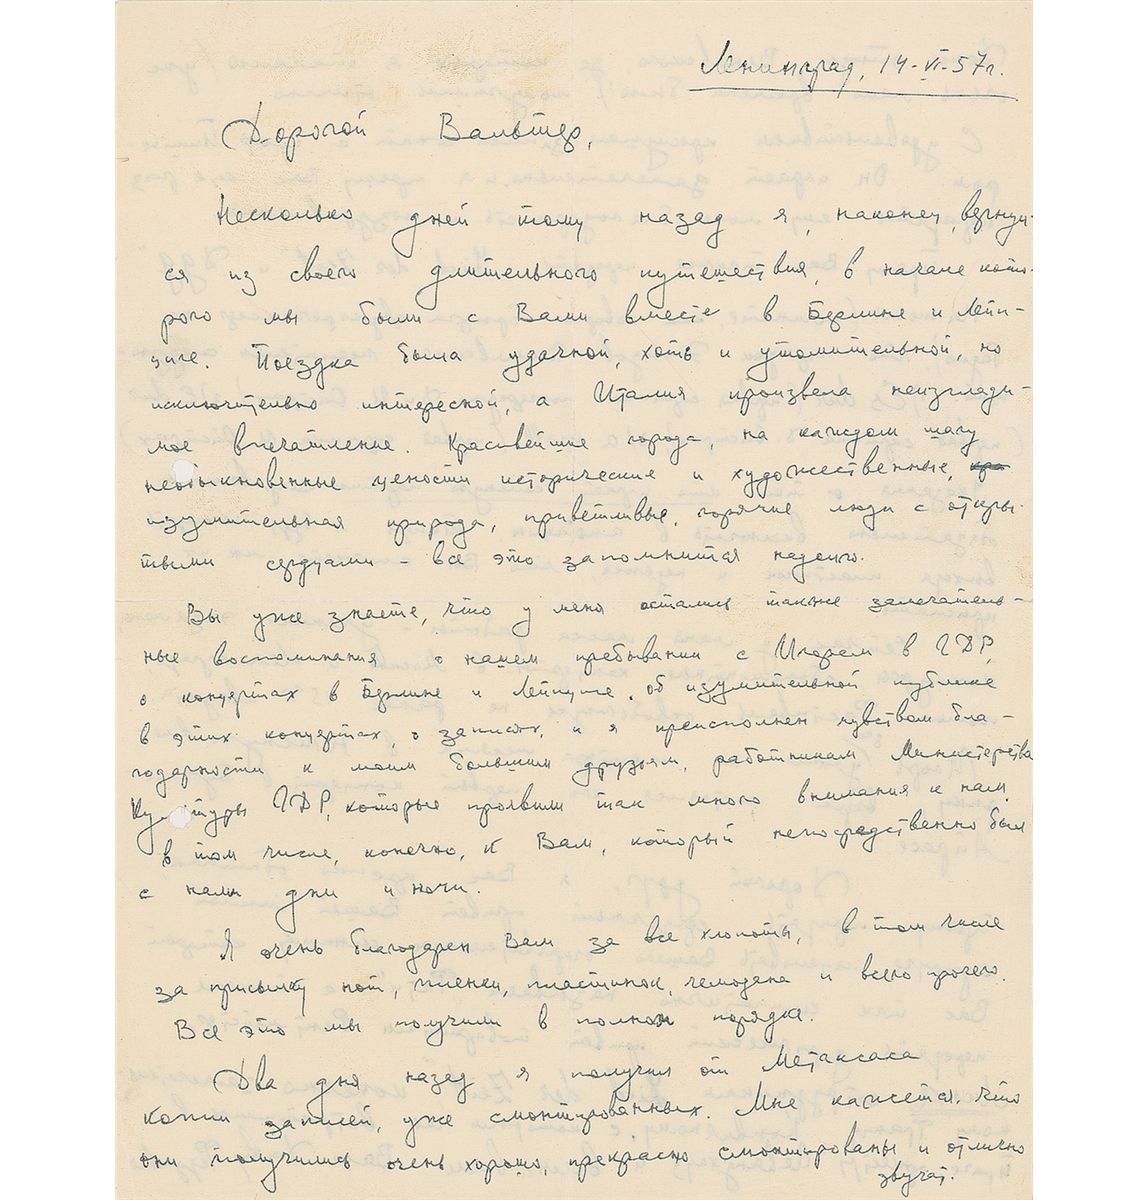 Ленинград, 14-VI-57г.
Дорогой Вальтер,
Несколько дней тому назад я, наконец, вернул-
ся из своего длительного путешествия, в начале кото-
рого мы были с Вами вместе в Берлине и Лейп-
циге. Поездка была удачной, хоть и утомительной, но
исключительно интересной, а Италия произвела неизглади-
мое впечатление. Красивейшие города, на каждом шагу
необыкновенные ценности исторические и художественные,
изумительная природа, приветливые, горячие люди с откры-
тыми сердцами - все это запомнится надолго.
Вы уже знаете, что у меня остались также замечатель-
ные воспоминания о нашем пребывании с Игорем в ГДР,
о концертах в Берлине и Лейпциге, об изумительной публике
в этих концертах, о записях, и я преисполнен чувством бла-
годарности к моим большим друзьям, работникам Министерства
Культуры ГДР, которые проявили так много внимания к нам,
в том числе, конечно, к Вам, который непосредственно был
с нами дни и ночи.
Я очень благодарен Вам за все хлопоты, в том числе
за присылку нот, пленки, пластинок, чемодана и всего прочего.
Все это мы получили в полном порядке.
Два дня назад я получил от Метаксаса
копии записей, уже смонтированных. Мне кажется, что
они получились очень хорошо, прекрасно смонтированы и отлично
звучат.